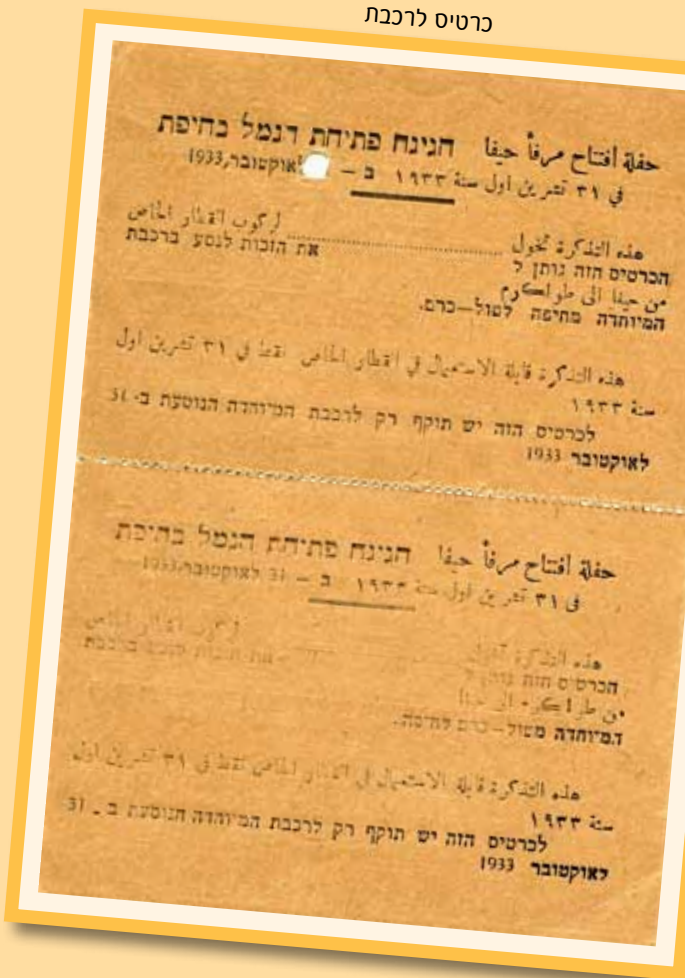 כרטיס לרכבת
حفلة افتتاح مرفأ حيفا חגיגת פתיחת הנמל בחיפה
في ٣١ تشرين اول سنة ١٩٣٣ ב – לאוקטובר,1933
هذه التذكرة تخول لركوب القطار الخاص
הכרטיס הזה נותן ל את הזכות לנסע ברכבת
من حيفا الى طولكرم
המיוחדה מחיפה לטול–כרם.
هذه التذكرة قابلة الاستعمال في القطار الخاص فقط في ٣١ تشرين اول
سنة ١٩٣٣
לכרטיס הזה יש תוקף רק לרכבת המיוחדה הנוסעת ב- 31
לאוקטובר 1933
حفلة افتتاح مرفأ حيفا חגיגת פתיחת הנמל בחיפה
في ٣١ تشرين اول سنة ١٩٣٣ ב – 31 לאוקטובר,1933
هذه التذكرة تخول لركوب القطار الخاص
הכרטיס הזה נותן ל את הזכות לנסע ברכבת
من طولكرم الى حيفا
המיוחדה מטול–כרם לחיפה.
هذه التذكرة قابلة الاستعمال في القطار الخاص فقط في ٣١ تشرين اول
سنة ١٩٣٣
לכרטיס הזה יש תוקף רק לרכבת המיוחדה הנוסעת ב - 31
לאוקטובר 1933